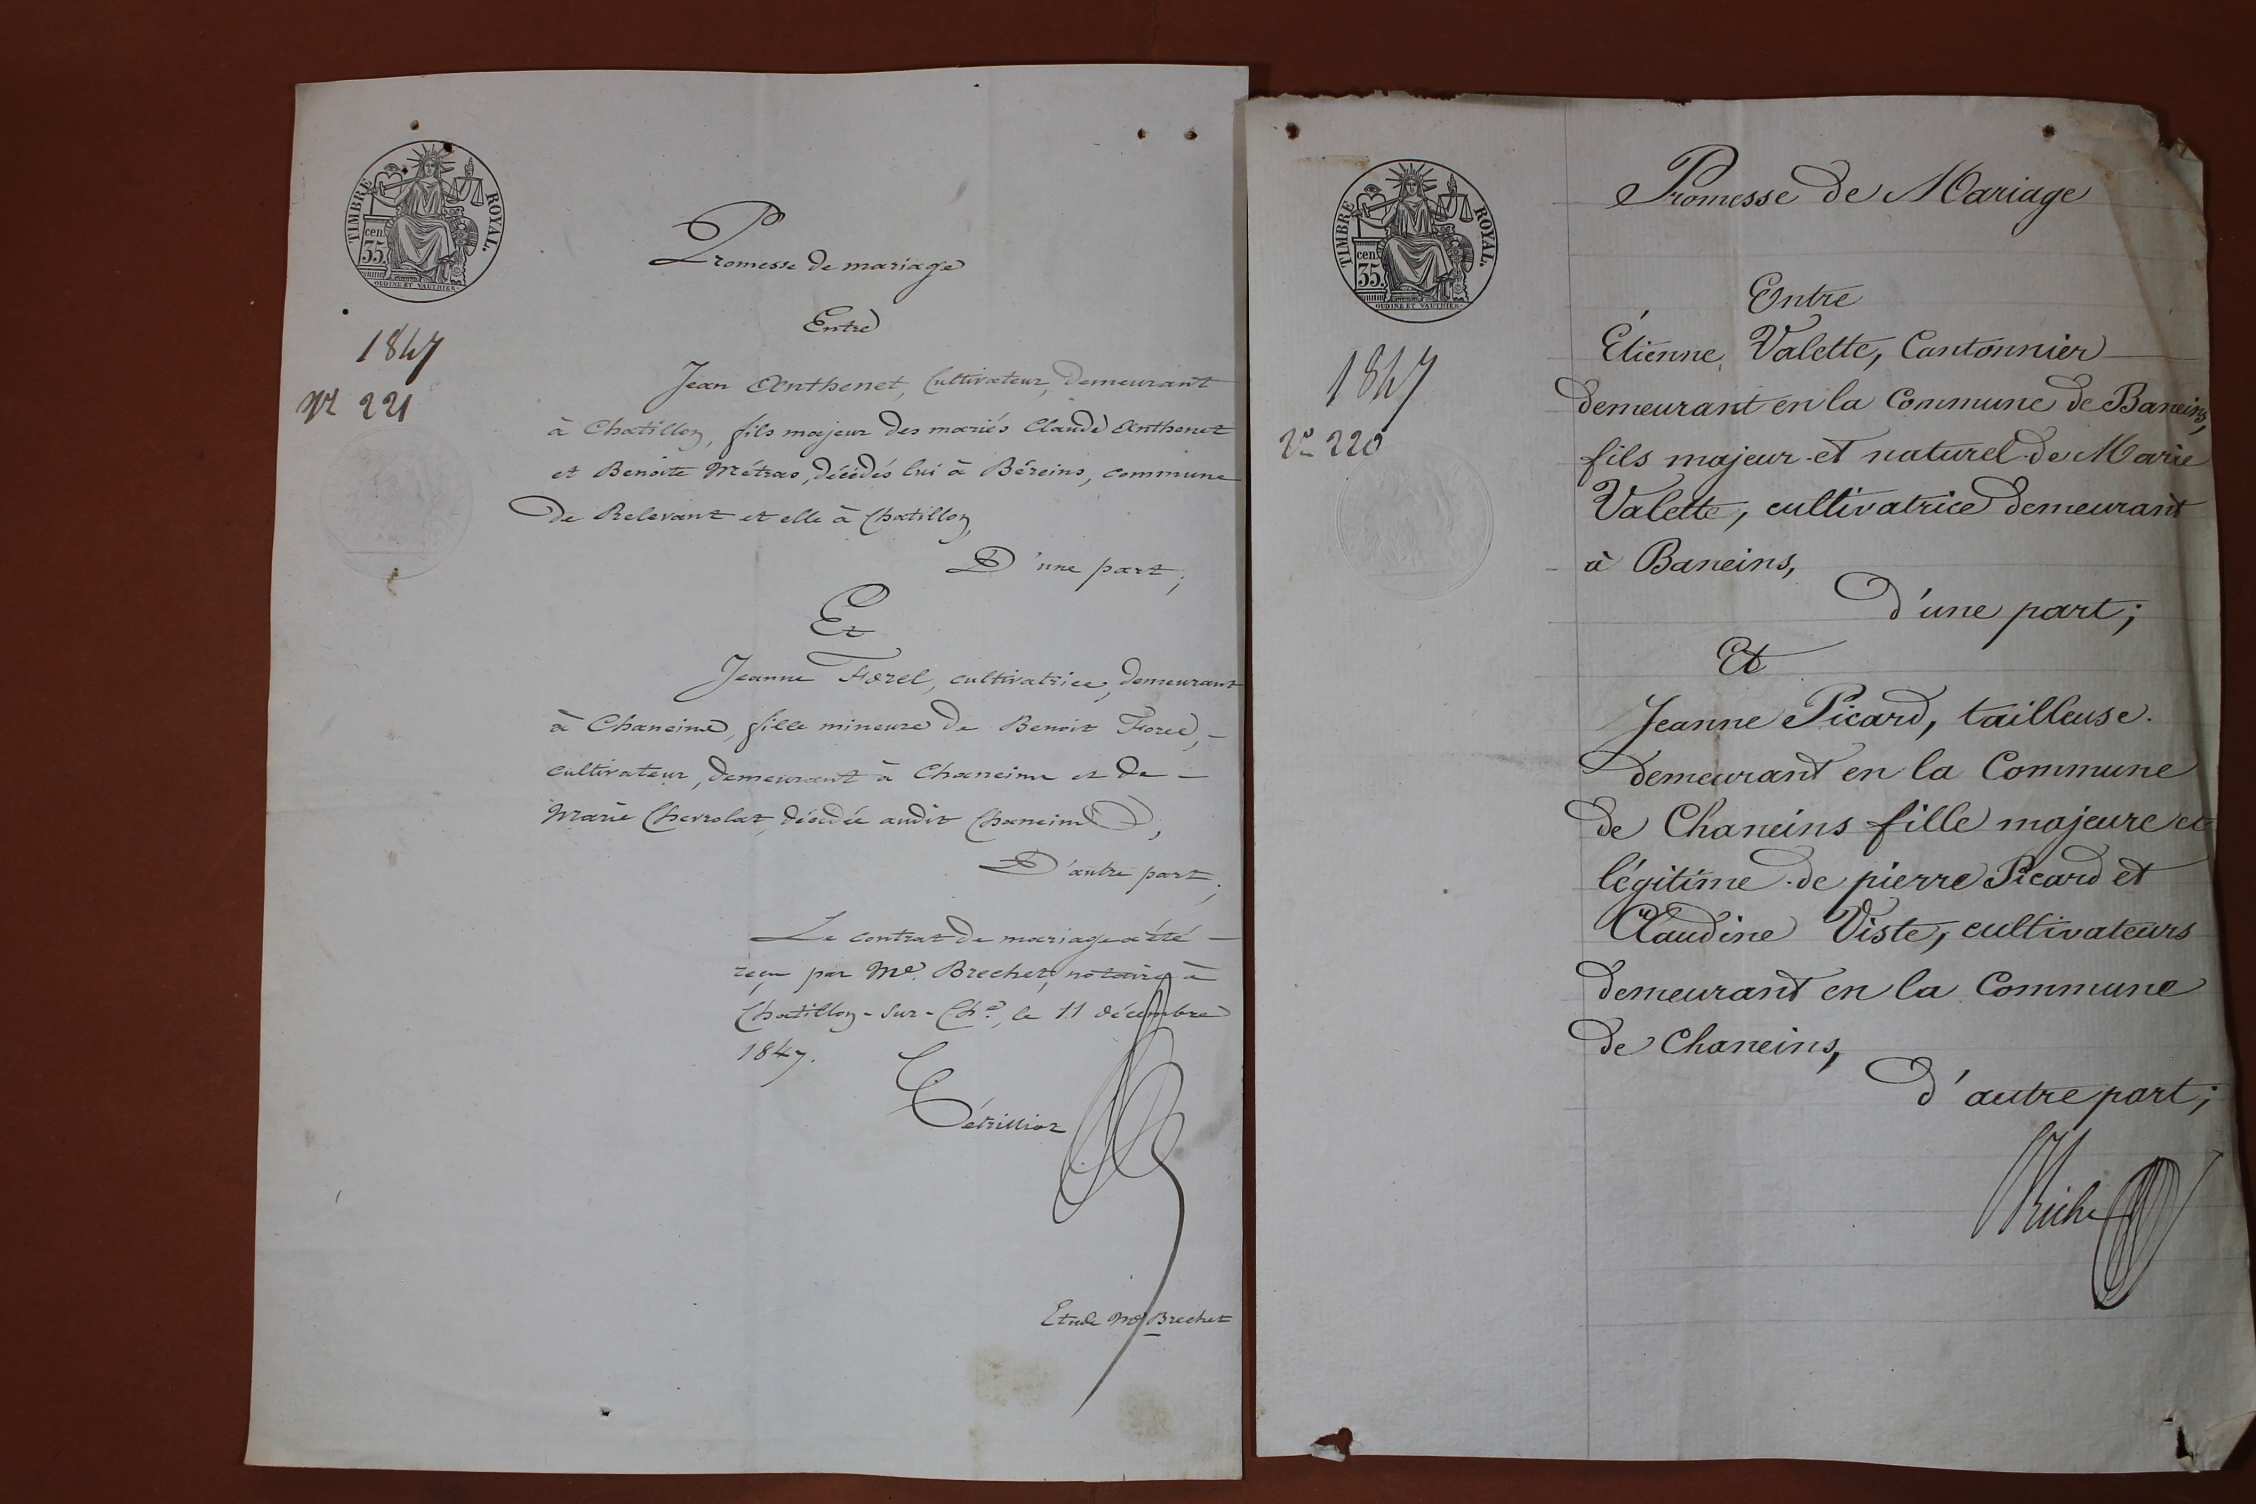 TIMBRE ROYAL.
cen.
35.
OUDINÉ ET VAUTHIER.
1847
Nº 221
Promesse de mariage
Entre
Jean Anthenet, Cultivateur, demeurant
à Chatillon, fils majeur des mariés Claude Anthenet
et Benoite Métras, décédés lui à Béreins, commune
de Relevant et elle à Chatillon,
D'une part;
Et
Jeanne Forel, cultivatrice, demeurant
à Chaneins, fille mineure de Benoit Forel,
cultivateur, demeurant à Chaneins et de
Marie Chevrolat, décédée audit Chaneins,
D'autre part;
Le contrat de mariage a été
reçu par Me. Brechet, notaire à
Chatillon-sur-Ch.e, le 11 décembre
1847.
Tétrilliot
Etude Me Brechet
TIMBRE ROYAL.
cen.
35.
OUDINÉ ET VAUTHIER.
1847
Nº 220
Promesse de Mariage
Entre
Étienne Valette, Cantonnier
demeurant en la Commune de Baneins,
fils majeur et naturel de Marie
Valette, cultivatrice demeurant
à Baneins,
D'une part;
Et
Jeanne Picard, tailleuse.
demeurant en la Commune
de Chaneins fille majeure et
légitime de pierre Picard et
Claudine Viste, cultivateurs
demeurant en la Commune
de Chaneins,
D'autre part;